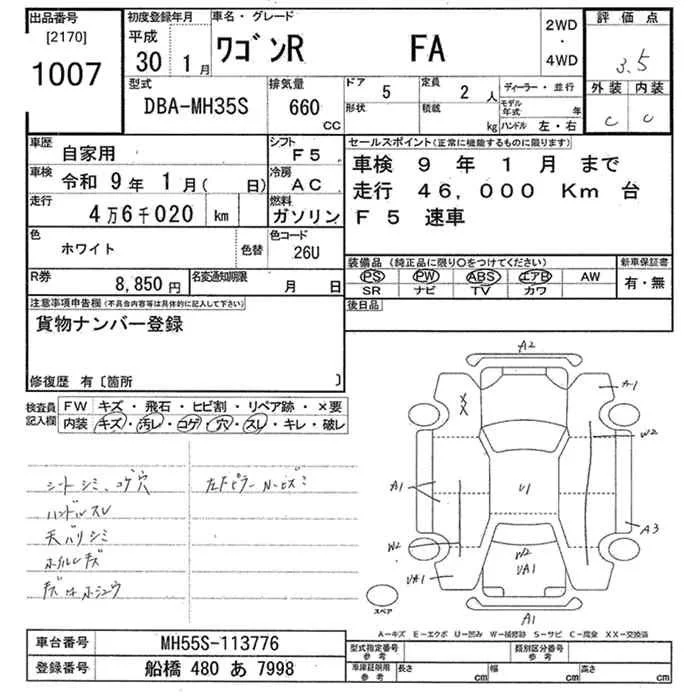 出品番号
[2170]
1007
初度登録年月
平成
30 1月
車名・グレード
ワゴンR FA
2WD
・
4WD
評価点
3.5
外装 内装
C C
型式
DBA-MH35S
排気量
660
CC
ドア
5
形状
定員
2人
積載
kg
ディーラー・並行
モデル年式 年
ハンドル 左・右
車歴
自家用
車検
令和 9年 1月( 日)
走行
4万6千020 km
シフト
F5
冷房
AC
燃料
ガソリン
色
ホワイト
色替
色コード
26U
R券
8,850円
名変通知期限
月 日
セールスポイント(正常に機能するものに限ります)
車検 9 年 1 月 まで
走行 46,000 Km 台
F5 速車
装備品(純正品に限り○をつけてください)
PS PW ABS エアB AW
SR ナビ TV カワ
新車保証書
有・無
後日品
注意事項申告欄(不具合内容等は具体的に記入して下さい)
貨物ナンバー登録
修復歴 有〔箇所 〕
検査員
記入欄
FW キズ・飛石・ヒビ割・リペア跡・×要
内装 キズ・汚レ・コゲ・穴・スレ・キレ・破レ
シートシミ、コゲ穴
ハンドルスレ
天バリシミ
ホイルキズ
キズはホシュウ
A2
A1
XX
W2
A1
U1
W2
W2
A3
UA1
UA1
A1
スペア
A-キズ E-エクボ U-凹み W-補修跡 S-サビ C-腐食 XX-交換済
車台番号
MH55S-113776
登録番号
船橋 480 あ 7998
型式指定番号
参考
類別区分番号
参考
車庫証明用
参考
長さ cm 幅 cm 高さ cm